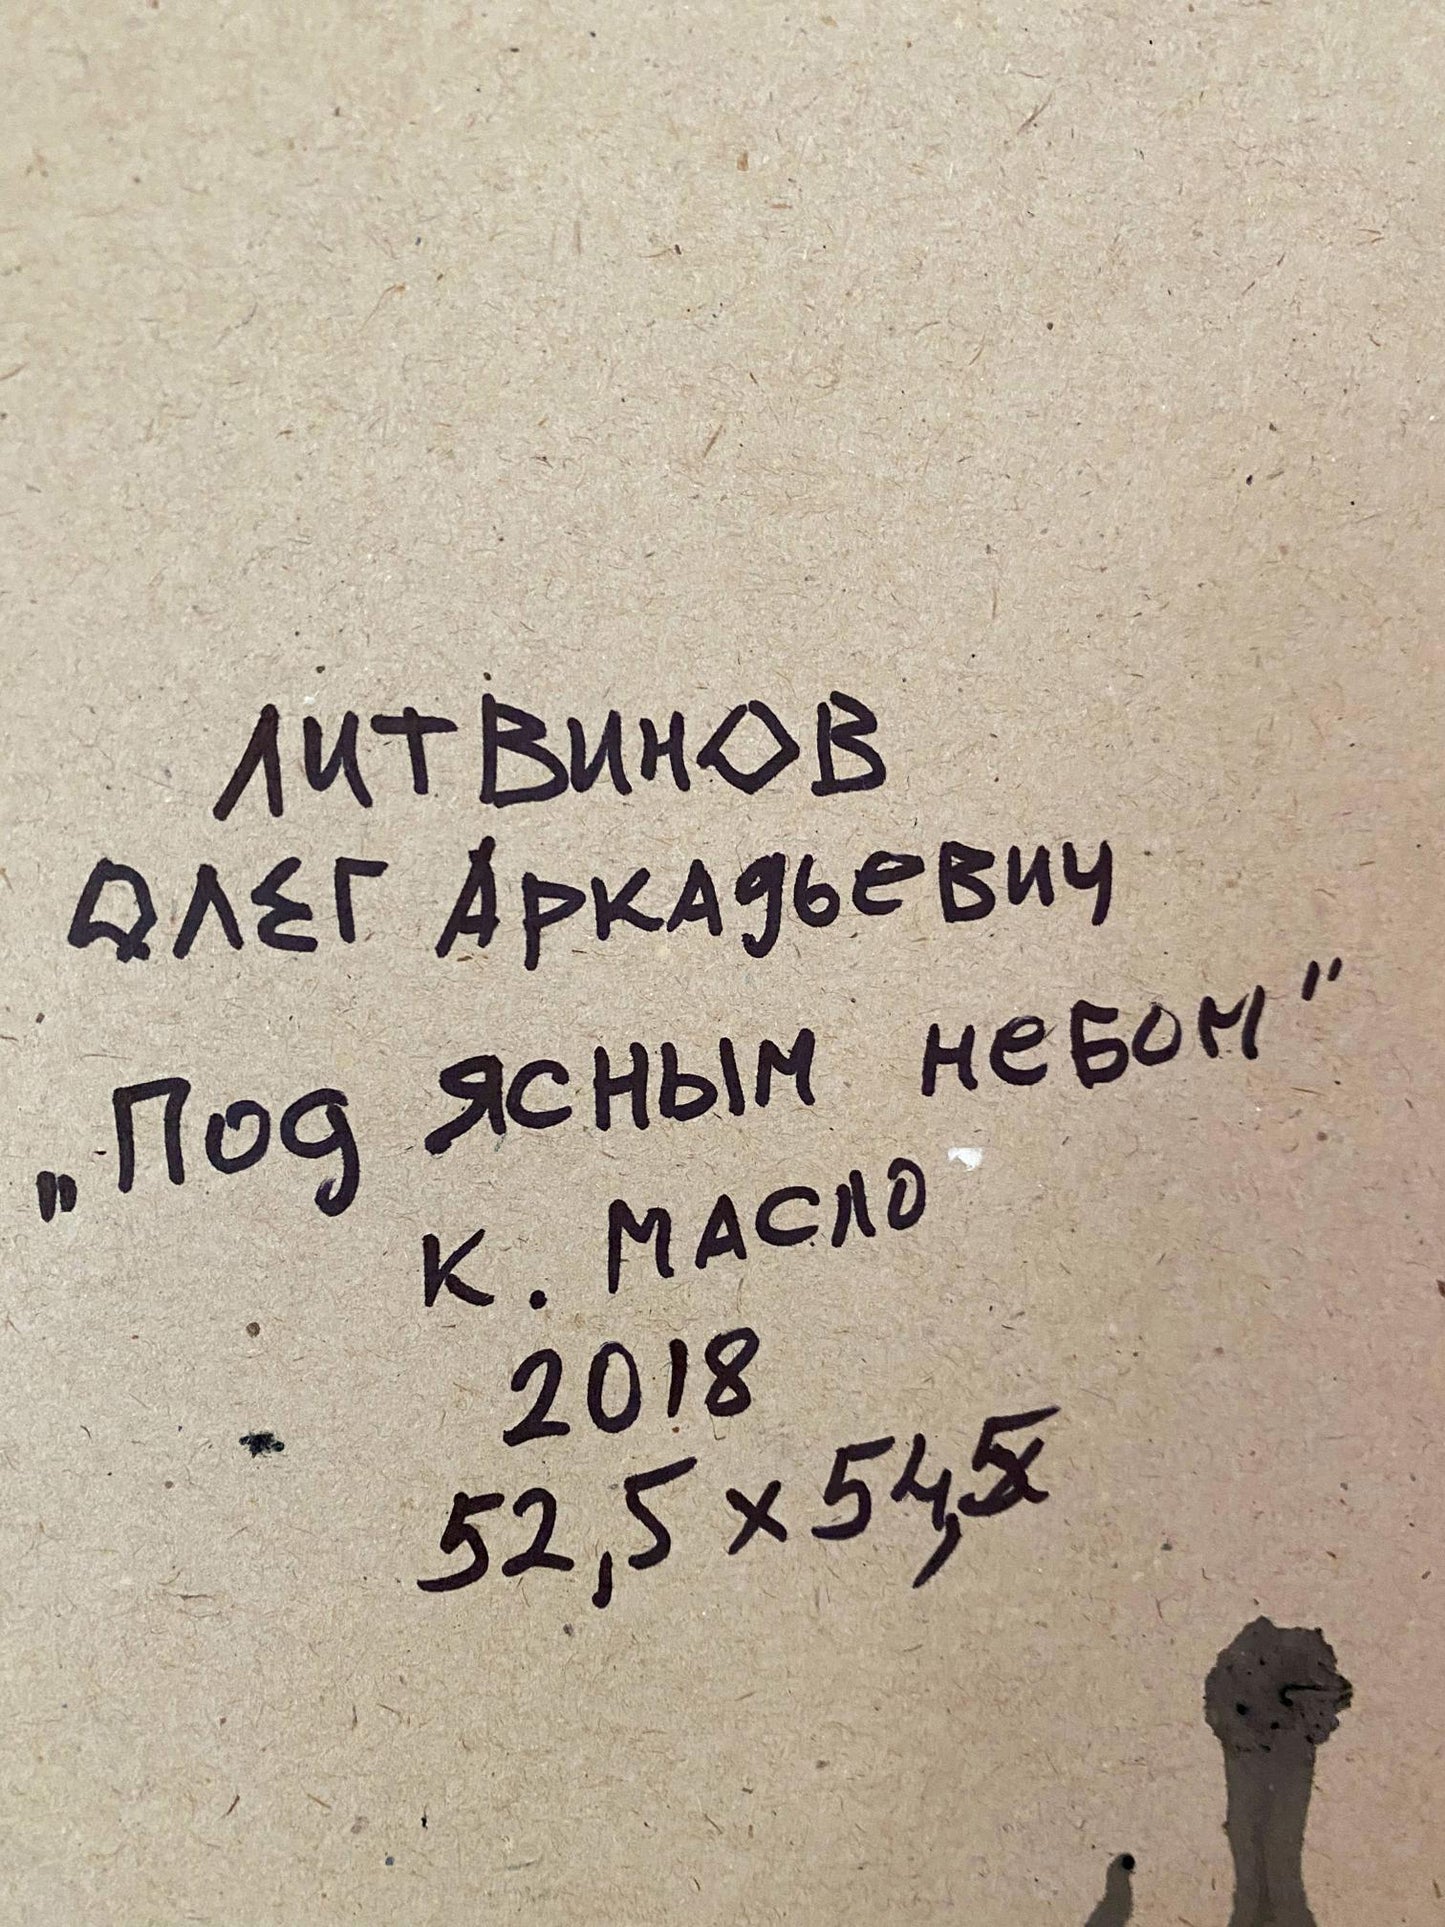 ЛИТВИНОВ
ОЛЕГ АРКАДЬЕВИЧ
„Под ясным небом"
К. МАСЛО
2018
52,5 х 54,5